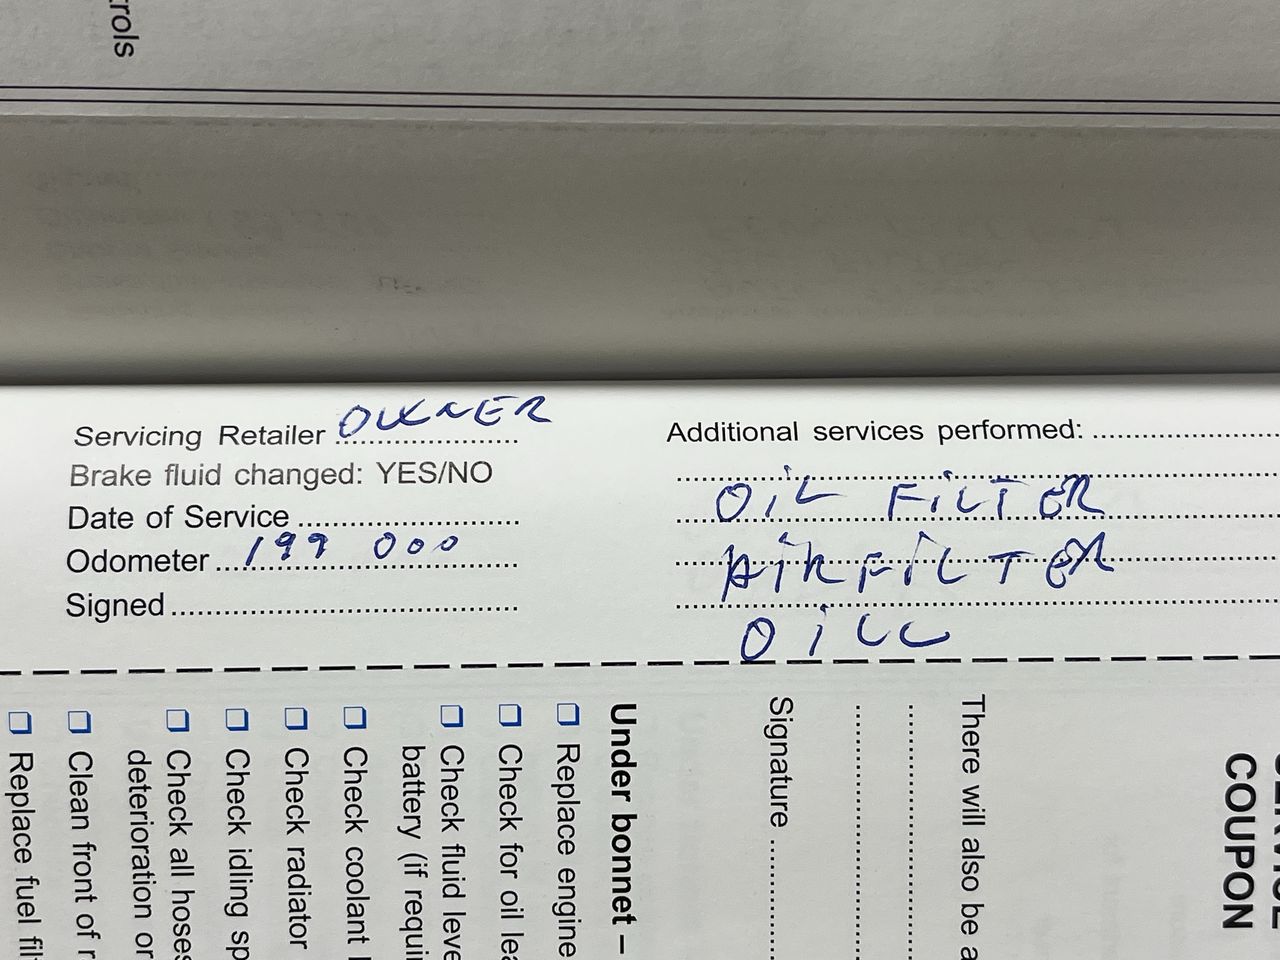 trols
Servicing Retailer OWNER
Brake fluid changed: YES/NO
Date of Service
Odometer 199 000
Signed
Additional services performed:
OIL FILTER
AIR FILTER
OILL
SERVICE
COUPON
There will also be a
Signature
Under bonnet –
Replace engine
Check for oil lea
Check fluid leve
battery (if requi
Check coolant l
Check radiator
Check idling sp
Check all hoses
deterioration or
Clean front of r
Replace fuel filt